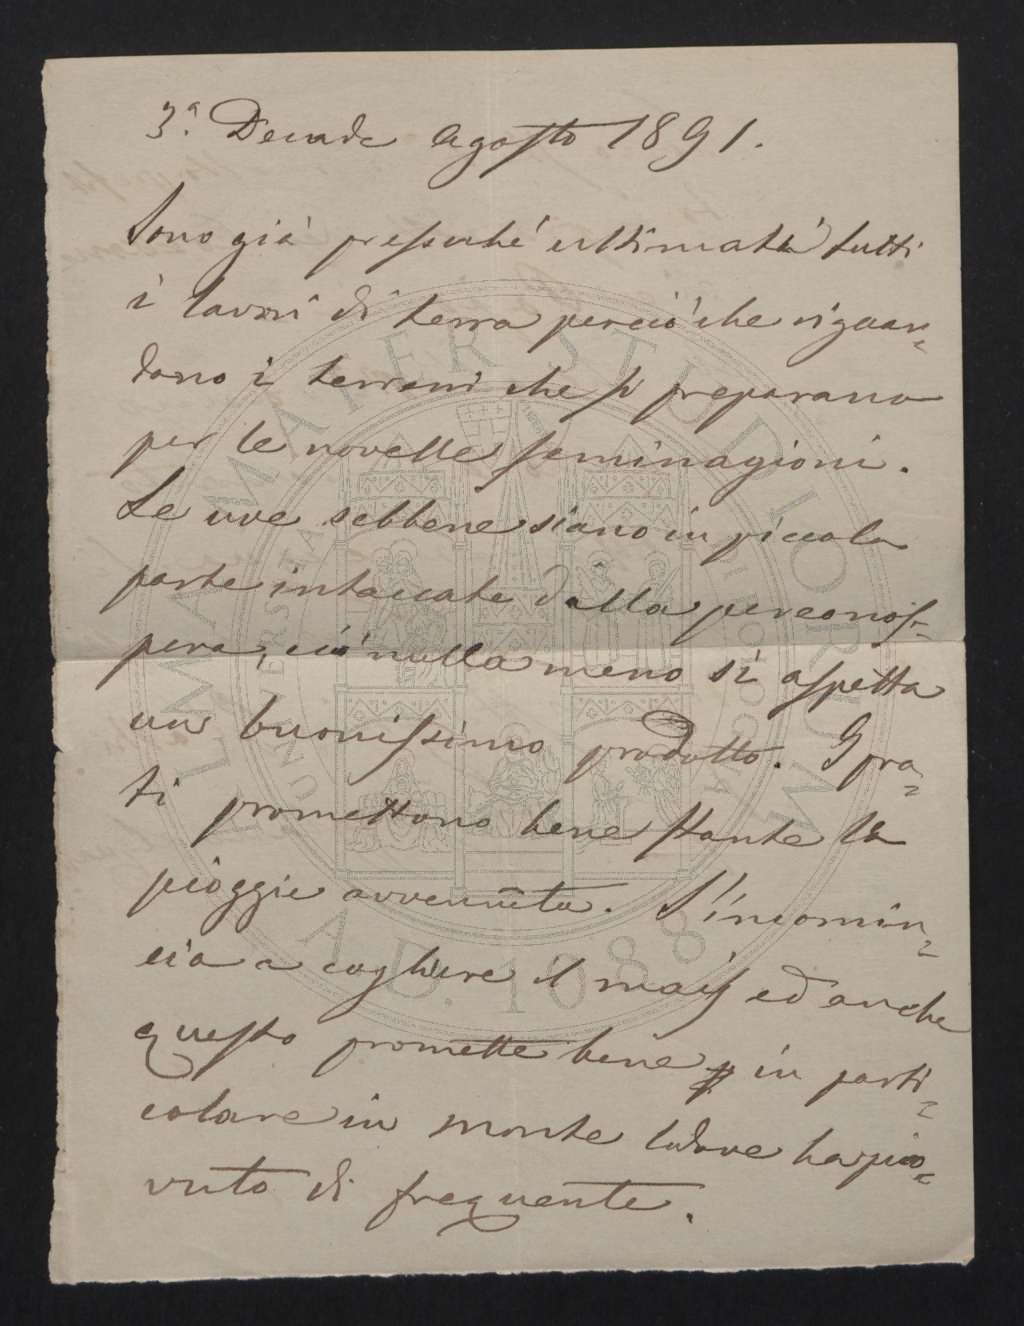 3.ª Decade Agosto 1891.
Sono già pressochè ultimati tutti
i lavori di terra perciò che riguar=
dano i terreni che si preparano
per le novelle seminagioni.
Le uve sebbene siano in piccola
parte intaccate dalla peronos=
pera, ciò nulla meno si aspetta
un buonissimo prodotto. I pra=
ti promettono bene stante la
pioggie avvenuta. S'incomin=
cia a cogliere il maïs ed anche
questo promette bene in parti=
colare in monte ladove ha pio=
vuto di frequente.
ALMA MATER STUDIORUM
A.D. 1088